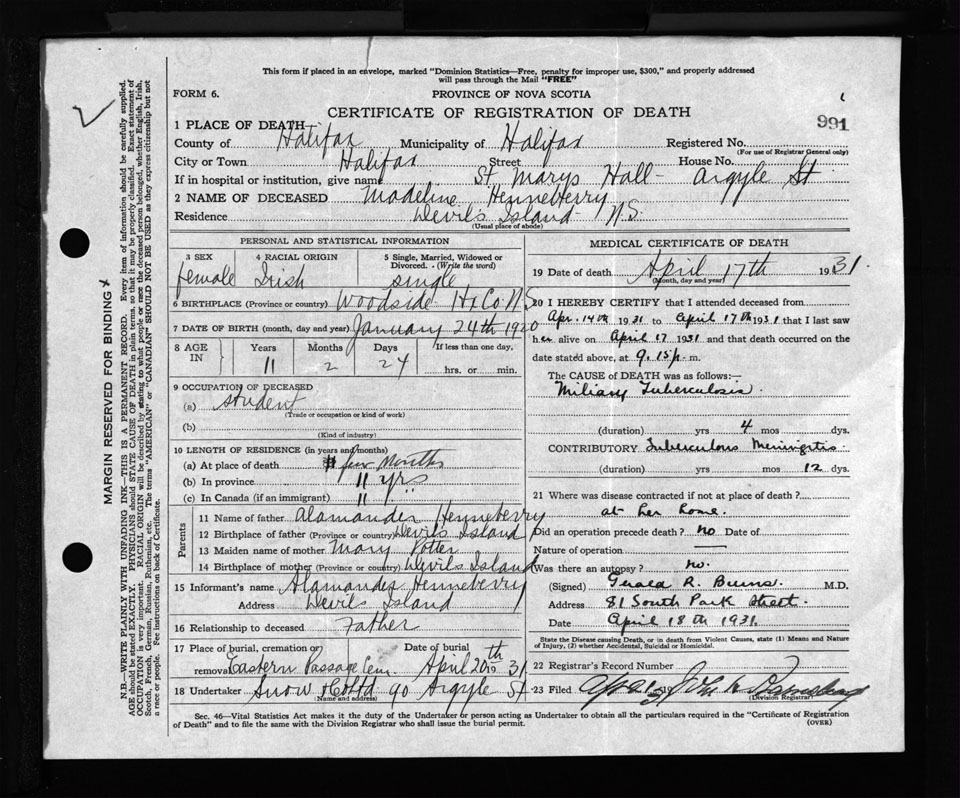 This form if placed in an envelope, marked "Dominion Statistics—Free, penalty for improper use, $300," and properly addressed
will pass through the Mail "FREE"
FORM 6.
PROVINCE OF NOVA SCOTIA
CERTIFICATE OF REGISTRATION OF DEATH
991
1 PLACE OF DEATH—
County of Halifax Municipality of Halifax Registered No.
(For use of Registrar General only)
City or Town Halifax Street House No.
If in hospital or institution, give name St Marys Hall - Argyle St
2 NAME OF DECEASED Madeline Henneberry
Residence Devils Island N.S.
(Usual place of abode)
PERSONAL AND STATISTICAL INFORMATION
3 SEX female
4 RACIAL ORIGIN Irish
5 Single, Married, Widowed or Divorced. (Write the word) single
6 BIRTHPLACE (Province or country) Woodside Hx Co. N.S
7 DATE OF BIRTH (month, day and year) January 24th 1920
8 AGE IN Years 11 Months 2 Days 24 If less than one day. hrs. or min.
9 OCCUPATION OF DECEASED
(a) student
(Trade or occupation or kind of work)
(b)
(Kind of industry)
10 LENGTH OF RESIDENCE (in years and months)
(a) At place of death few Months
(b) In province 11 yrs
(c) In Canada (if an immigrant) 11 "
Parents
11 Name of father Alamander Henneberry
12 Birthplace of father (Province or country) Devils Island
13 Maiden name of mother Mary Potter
14 Birthplace of mother (Province or country) Devils Island
15 Informant's name Alamander Henneberry
Address Devils Island
16 Relationship to deceased Father
17 Place of burial, cremation or removal Eastern Passage Cem. Date of burial April 20th 31
18 Undertaker Snow & Co Ltd 90 Argyle St
(Name and address)
MEDICAL CERTIFICATE OF DEATH
19 Date of death April 17th 1931.
(Month, day and year)
20 I HEREBY CERTIFY that I attended deceased from
Apr. 14th 1931 to April 17th 1931 that I last saw
her alive on April 17 1931 and that death occurred on the
date stated above, at 9.15 p. m.
The CAUSE OF DEATH was as follows:—
Miliary Tuberculosis.
(duration) yrs 4 mos dys.
CONTRIBUTORY Tuberculous Meningitis.
(duration) yrs mos 12 dys.
21 Where was disease contracted if not at place of death?
at her home.
Did an operation precede death? no Date of
Nature of operation —
Was there an autopsy? no.
(Signed) Gerald R. Burns. M.D.
Address 81 South Park Street.
Date April 18th 1931.
State the Disease causing Death, or in death from Violent Causes, state (1) Means and Nature
of Injury, (2) whether Accidental, Suicidal or Homicidal.
22 Registrar's Record Number
23 Filed
(Division Registrar)
Sec. 46—Vital Statistics Act makes it the duty of the Undertaker or person acting as Undertaker to obtain all the particulars required in the "Certificate of Registration
of Death" and to file the same with the Division Registrar who shall issue the burial permit.
(OVER)
MARGIN RESERVED FOR BINDING
N.B.—WRITE PLAINLY WITH UNFADING INK—THIS IS A PERMANENT RECORD. Every item of information should be carefully supplied.
AGE should be stated EXACTLY. PHYSICIANS should STATE CAUSE OF DEATH in plain terms, so that it may be properly classified. Exact statement of
OCCUPATION is very important. RACIAL ORIGIN will be described by stating to what people or race the deceased person belonged, whether English, Irish,
Scotch, French, German, Russian, Ruthenian, etc. The terms "AMERICAN" or "CANADIAN" SHOULD NOT BE USED as they express citizenship but not
a race or people. Fee instructions on back of Certificate.